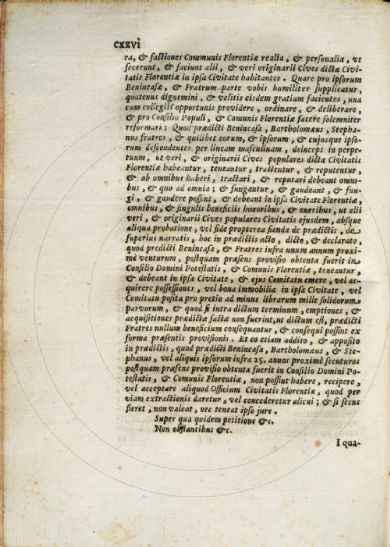 CXXVI
ra, & factiones Communis Florentiæ realia, & personalia, ut
fecerunt, & faciunt alii, & veri originarii Cives dictæ Civi-
tatis Florentiæ in ipsa Civitate habitantes. Quare pro ipsorum
Benincasæ, & Fratrum parte vobis humiliter supplicatur,
quatenus dignemini, & velitis eisdem gratiam facientes, una
cum collegiis opportunis providere, ordinare, & deliberare,
& pro Consilio Populi, & Comunis Florentiæ facere solemniter
reformari: Quod prædicti Benincasa, Bartholomæus, Stepha-
nus fratres, & quilibet eorum, & ipsorum, & cujusque ipso-
rum descendentes per lineam masculinam, deinceps in perpe-
tuum, ut veri, & originarii Cives populares dictæ Civitatis
Florentiæ habeantur, teneantur, tractentur, & reputentur,
& ab omnibus haberi, tractari, & reputari debeant omni-
bus, & quo ad omnia; & fungantur, & gaudeant, & fun-
gi, & gaudere possint, & debeant in ipsa Civitate Florentiæ,
omnibus, & singulis beneficiis honoribus, & oneribus, ut alii
veri, & originarii Cives populares Civitatis ejusdem, absque
aliqua probatione, vel fide propterea fienda de prædictis, de
superius narratis, hoc in prædictis acto, dicto, & declarato,
quod predicti Benincasa, & Fratres infra unum annum proxi-
me venturum, postquam præsens provisio obtenta fuerit in
Consilio Domini Potestatis, & Comunis Florentiæ, teneantur,
& debeant in ipsa Civitate, & ejus Comitatu emere, vel ac-
quirere possessiones, vel bona immobilia in ipsa Civitate, vel
Comitatu posita pro pretio ad minus librarum mille solidorum
parvorum, & quod si intra dictum terminum, emptiones, &
acquisitiones prædictæ factæ non fuerint, ut dictum est, prædicti
Fratres nullum beneficium consequantur, & consequi possint ex
forma præsentis provisionis. Et eo etiam addito, & apposito
in prædictis, quod prædicti Benincasa, Bartholomæus, & Ste-
phanus, vel aliquis ipsorum infra 25. annos proximè secuturos
postquam præsens provisio obtenta fuerit in Consilio Domini Po-
testatis, & Comunis Florentiæ, non possint habere, recipere,
vel acceptare aliquod Officium Civitatis Florentiæ, quod per
viam extractionis daretur, vel concederetur alicui; & si secus
fieret, non valeat, nec teneat ipso jure.
Super qua quidem petitione &c.
Non obstantibus &c.
I qua-